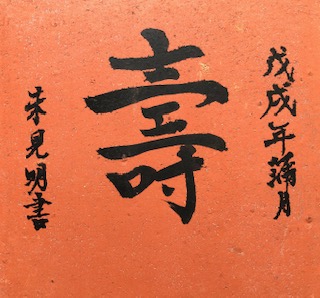 戊戌年蒲月
壽
朱見明書